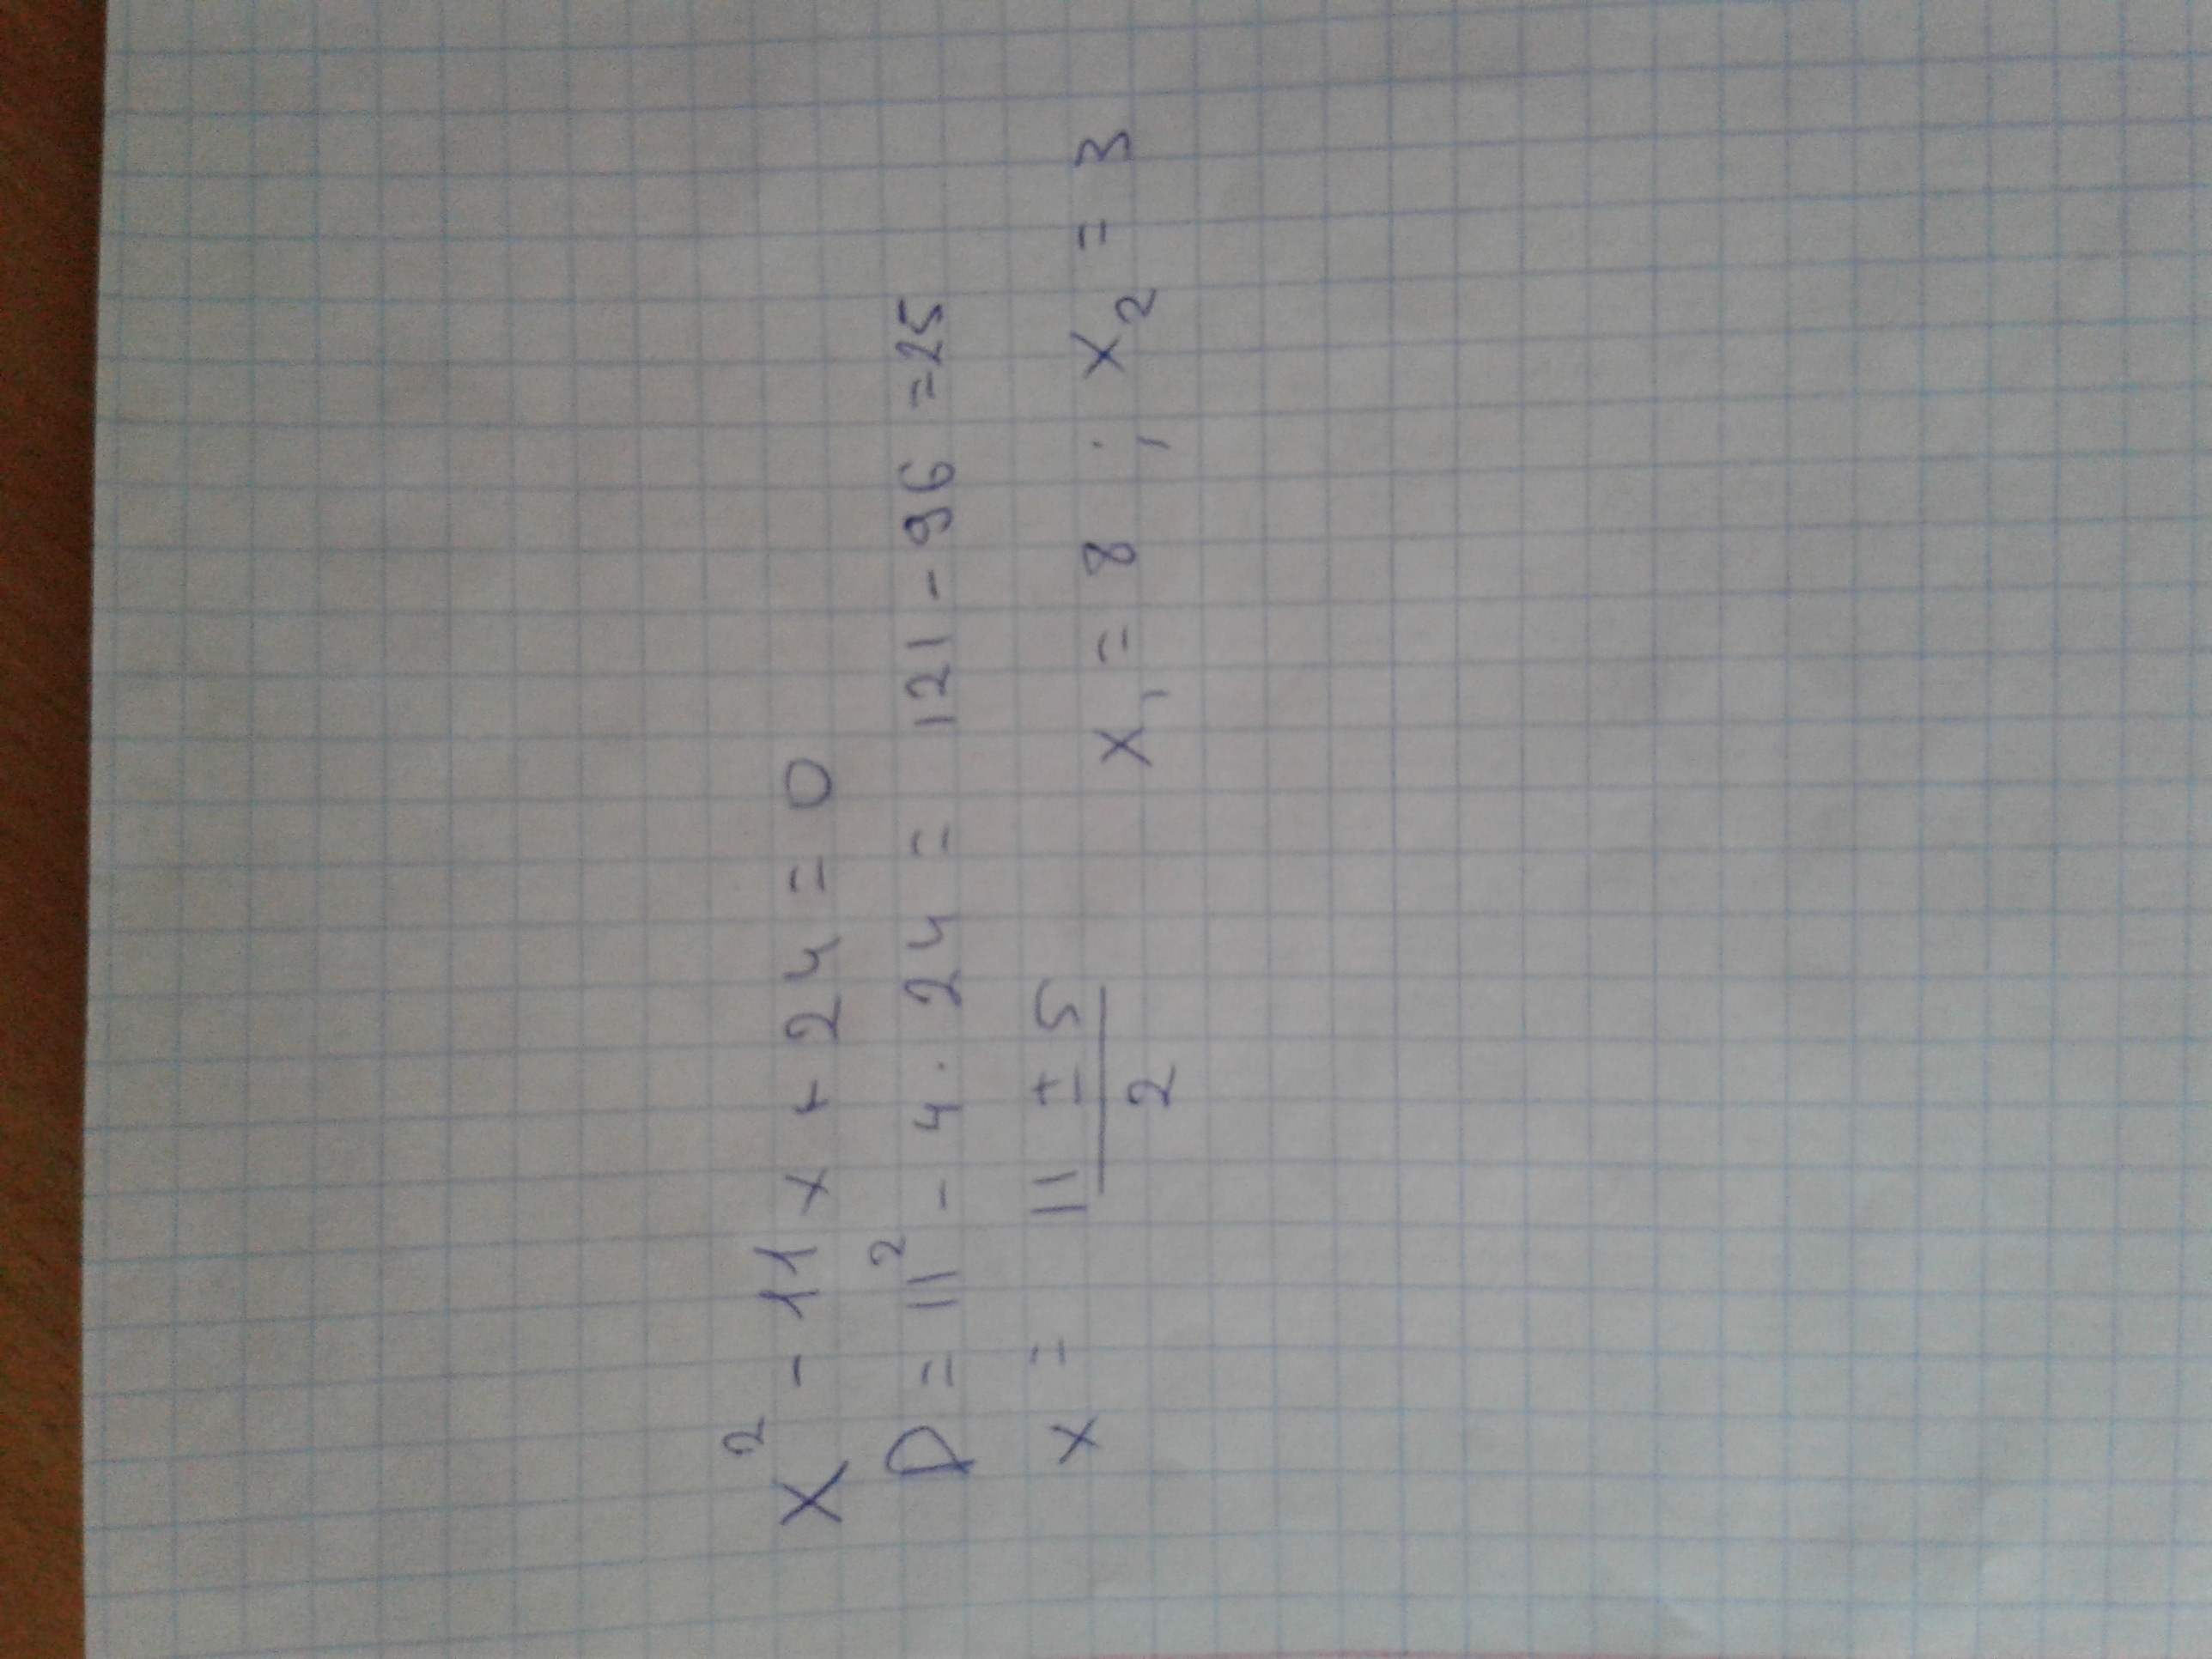 x² - 11x + 24 = 0
D = 11² - 4 · 24 = 121 - 96 = 25
x = (11 ± 5)/2 x₁ = 8 ; x₂ = 3